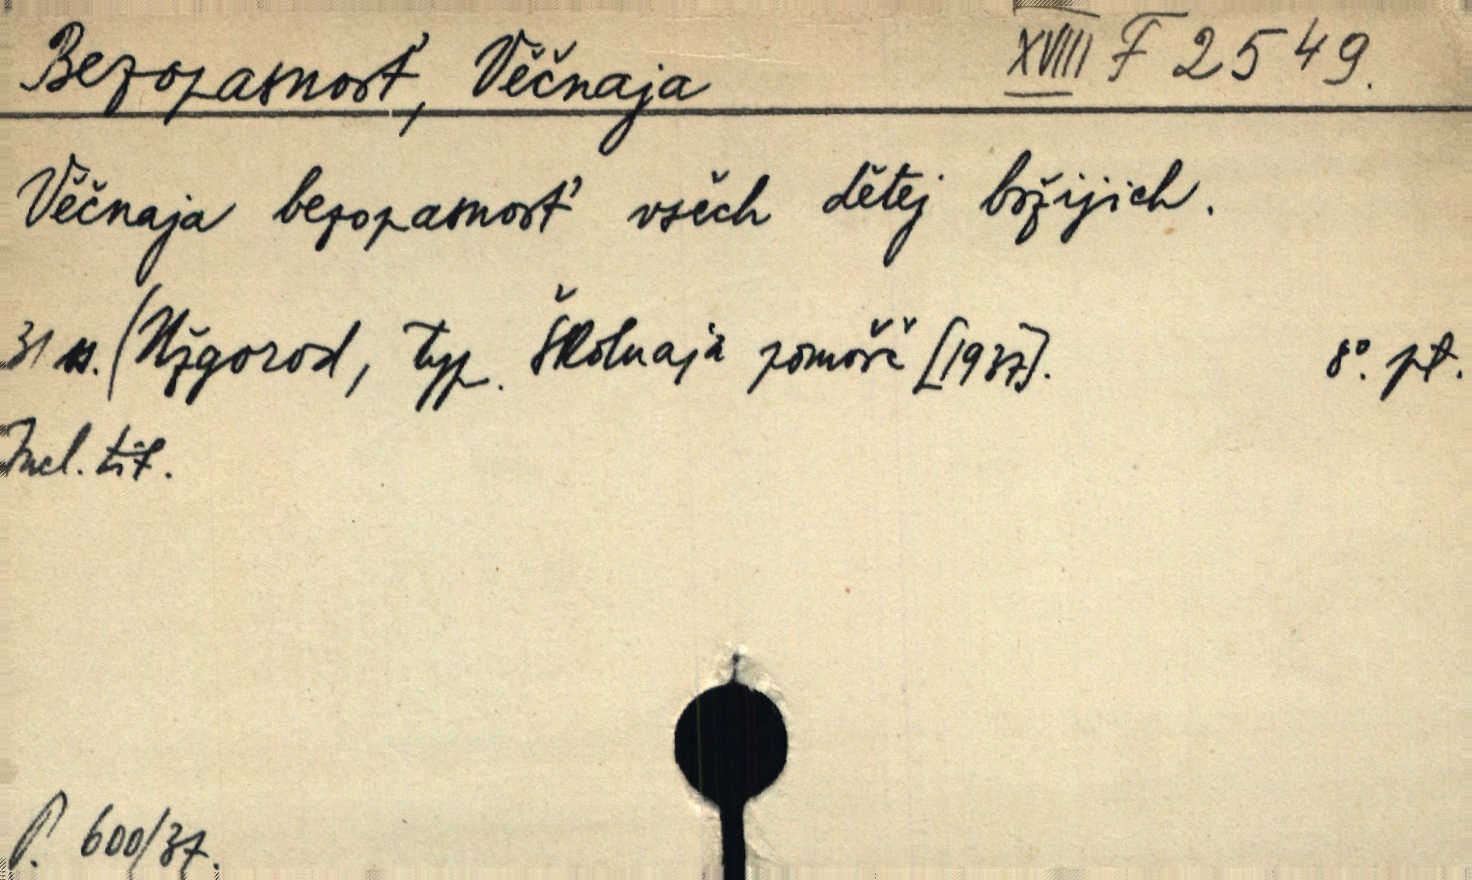 Bezopasnosť, Věčnaja XVIII F 2549.
Věčnaja bezopasnosť všěch dětej božijich.
31 s. (Užgorod, typ. Školnaja pomošč [1937]. 8°. pt.
Incl. tit.
P. 600/37.